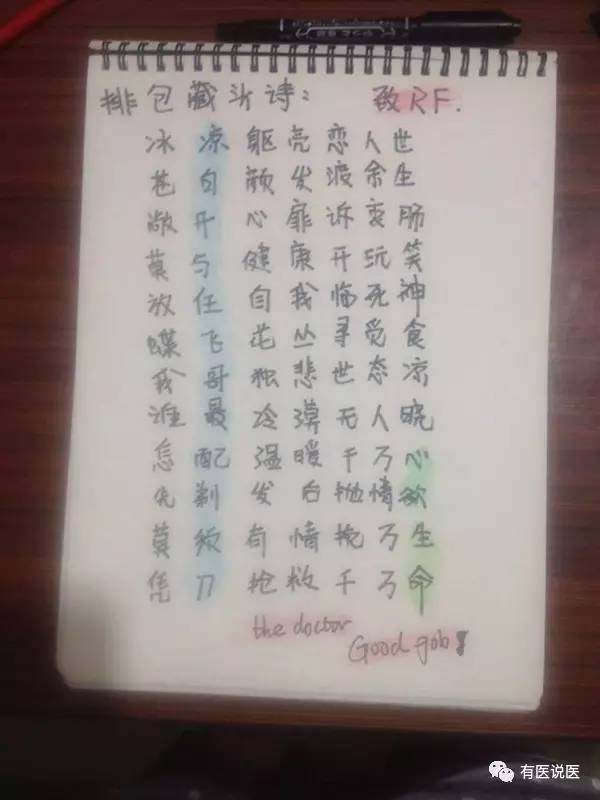 排包藏头诗: 致RF.
冰凉躯壳恋人世
苍白颜发渡余生
敞开心扉诉衷肠
莫与健康开玩笑
放任自我临死神
蝶飞花丛寻觅食
我哥独悲世态凉
谁最冷漠无人晓
怎配温暖千万心
先剃发后抛情欲
莫须有情挽万生
凭刀抢救千万命
the doctor
Good gob!
有医说医